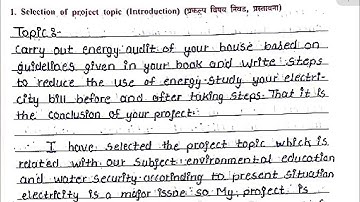 1. Selection of project topic (Introduction) (प्रकल्प विषय निवड, प्रस्तावना)
Topic :-
Carry out energy audit of your house based on
guidelines given in your book and write steps
to reduce the use of energy. study your electri-
city bill before and after taking steps. That it is
the conclusion of your project.
I have selected the project topic which is
related with our subject environmental education
and water security accorinding to present situation
electricity is a major issoe so My project is